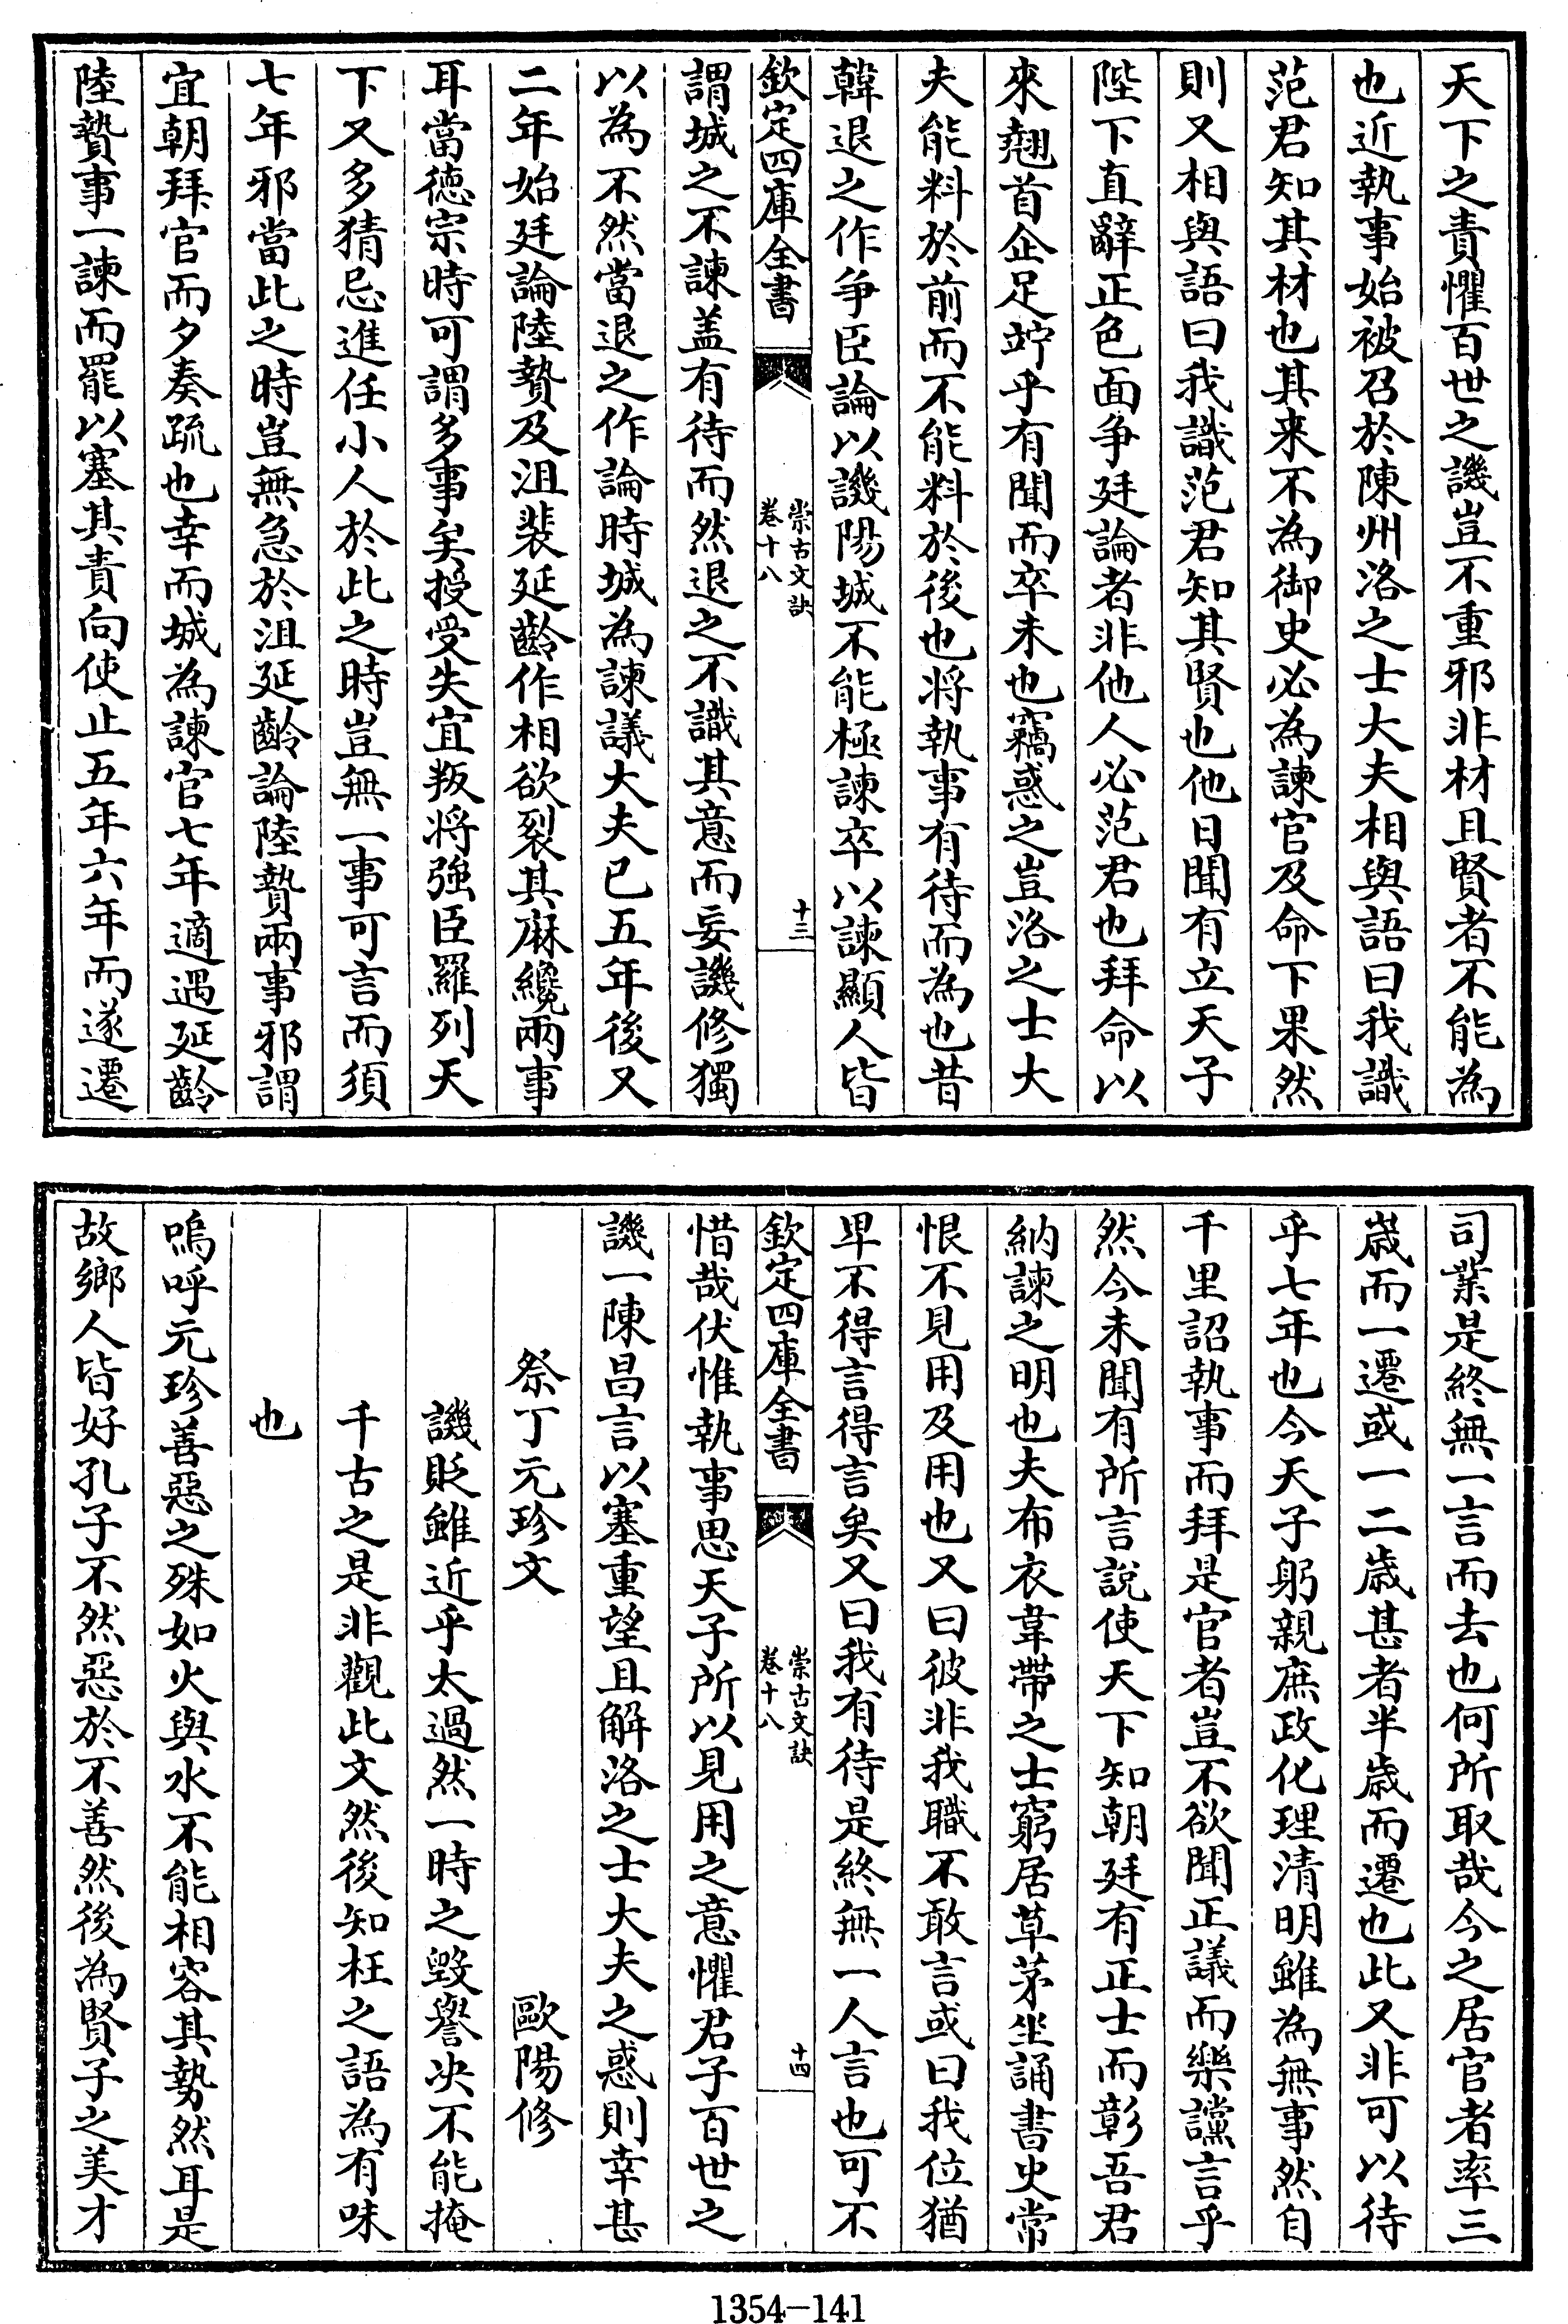 天下之責懼百世之譏豈不重邪非材且賢者不能為
也近執事始被召於陳州洛之士大夫相與語曰我識
范君知其材也其来不為御史必為諫官及命下果然
則又相與語曰我識范君知其賢也他日聞有立天子
陛下直辭正色面争廷論者非他人必范君也拜命以
來翹首企足竚乎有聞而卒未也竊惑之豈洛之士大
夫能料於前而不能料於後也將執事有待而為也昔
韓退之作争臣論以譏陽城不能極諫卒以諫顯人皆
欽定四庫全書
崇古文訣
卷十八
十三
謂城之不諫盖有待而然退之不識其意而妄譏修獨
以為不然當退之作論時城為諫議大夫已五年後又
二年始廷論陸贄及沮裴延齡作相欲裂其麻纔兩事
耳當徳宗時可謂多事矣授受失宜叛將強臣羅列天
下又多猜忌進任小人於此之時豈無一事可言而須
七年邪當此之時豈無急於沮延齡論陸贄兩事邪謂
宜朝拜官而夕奏疏也幸而城為諫官七年適遇延齡
陸贄事一諫而罷以塞其責向使止五年六年而遂遷
司業是終無一言而去也何所取哉今之居官者率三
歲而一遷或一二歲甚者半歲而遷也此又非可以待
乎七年也今天子躬親庶政化理清明雖為無事然自
千里詔執事而拜是官者豈不欲聞正議而樂讜言乎
然今未聞有所言説使天下知朝廷有正士而彰吾君
納諫之明也夫布衣韋帶之士窮居草茅坐誦書史常
恨不見用及用也又曰彼非我職不敢言或曰我位猶
卑不得言得言矣又曰我有待是終無一人言也可不
欽定四庫全書
崇古文訣
卷十八
十四
惜哉伏惟執事思天子所以見用之意懼君子百世之
譏一陳昌言以塞重望且解洛之士大夫之惑則幸甚
祭丁元珍文　歐陽修
譏貶雖近乎太過然一時之毀譽决不能掩
千古之是非觀此文然後知枉之語為有味
也
嗚呼元珍善惡之殊如火與水不能相容其勢然耳是
故鄉人皆好孔子不然惡於不善然後為賢子之美才
1354-141